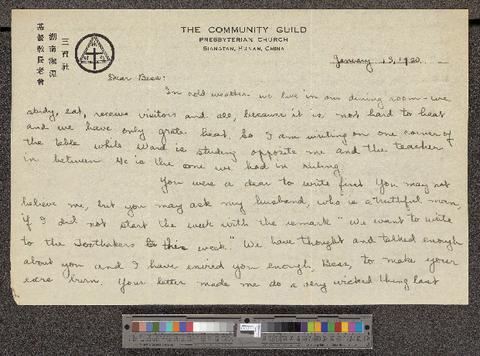 THE COMMUNITY GUILD
PRESBYTERIAN CHURCH
SIANGTAN, HUNAN, CHINA
三育社
湖南湘潭
基督教長老會
January 13, 1920.
Dear Bess:
In cold weather we live in our dining room - we
study, eat, receive visitors and all, because it is not hard to heat
and we have only grate heat. So I am writing on one corner of
the table while Ward is studying opposite me and the teacher
in between. He is the one we had in Kuling.
You were a dear to write first. You may not
believe me, but you may ask my husband, who is a truthful man,
if I did not start the week with the remark "We want to write
to the Toothakers this week." We have thought and talked enough
about you and I have envied you enough, Bess, to make your
ears burn. Your letter made me do a very wicked thing last